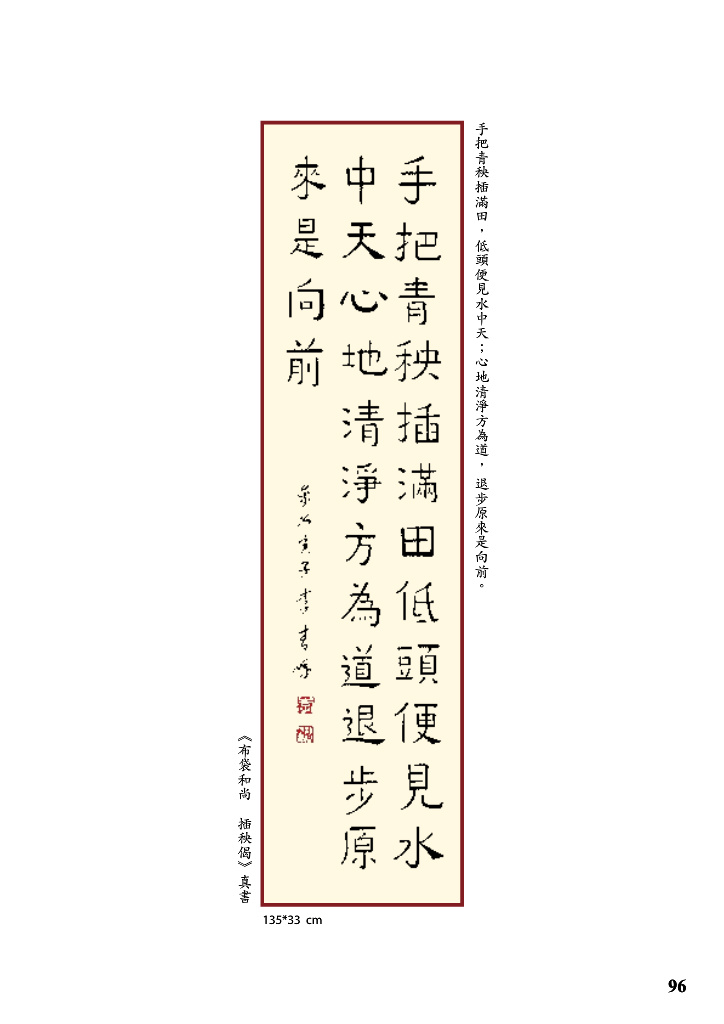 手把青秧插滿田，低頭便見水中天；心地清淨方為道，退步原來是向前。
手把青秧插滿田低頭便見水
中天心地清淨方為道退步原
來是向前
《布袋和尚　插秧偈》真書
135*33 cm
96